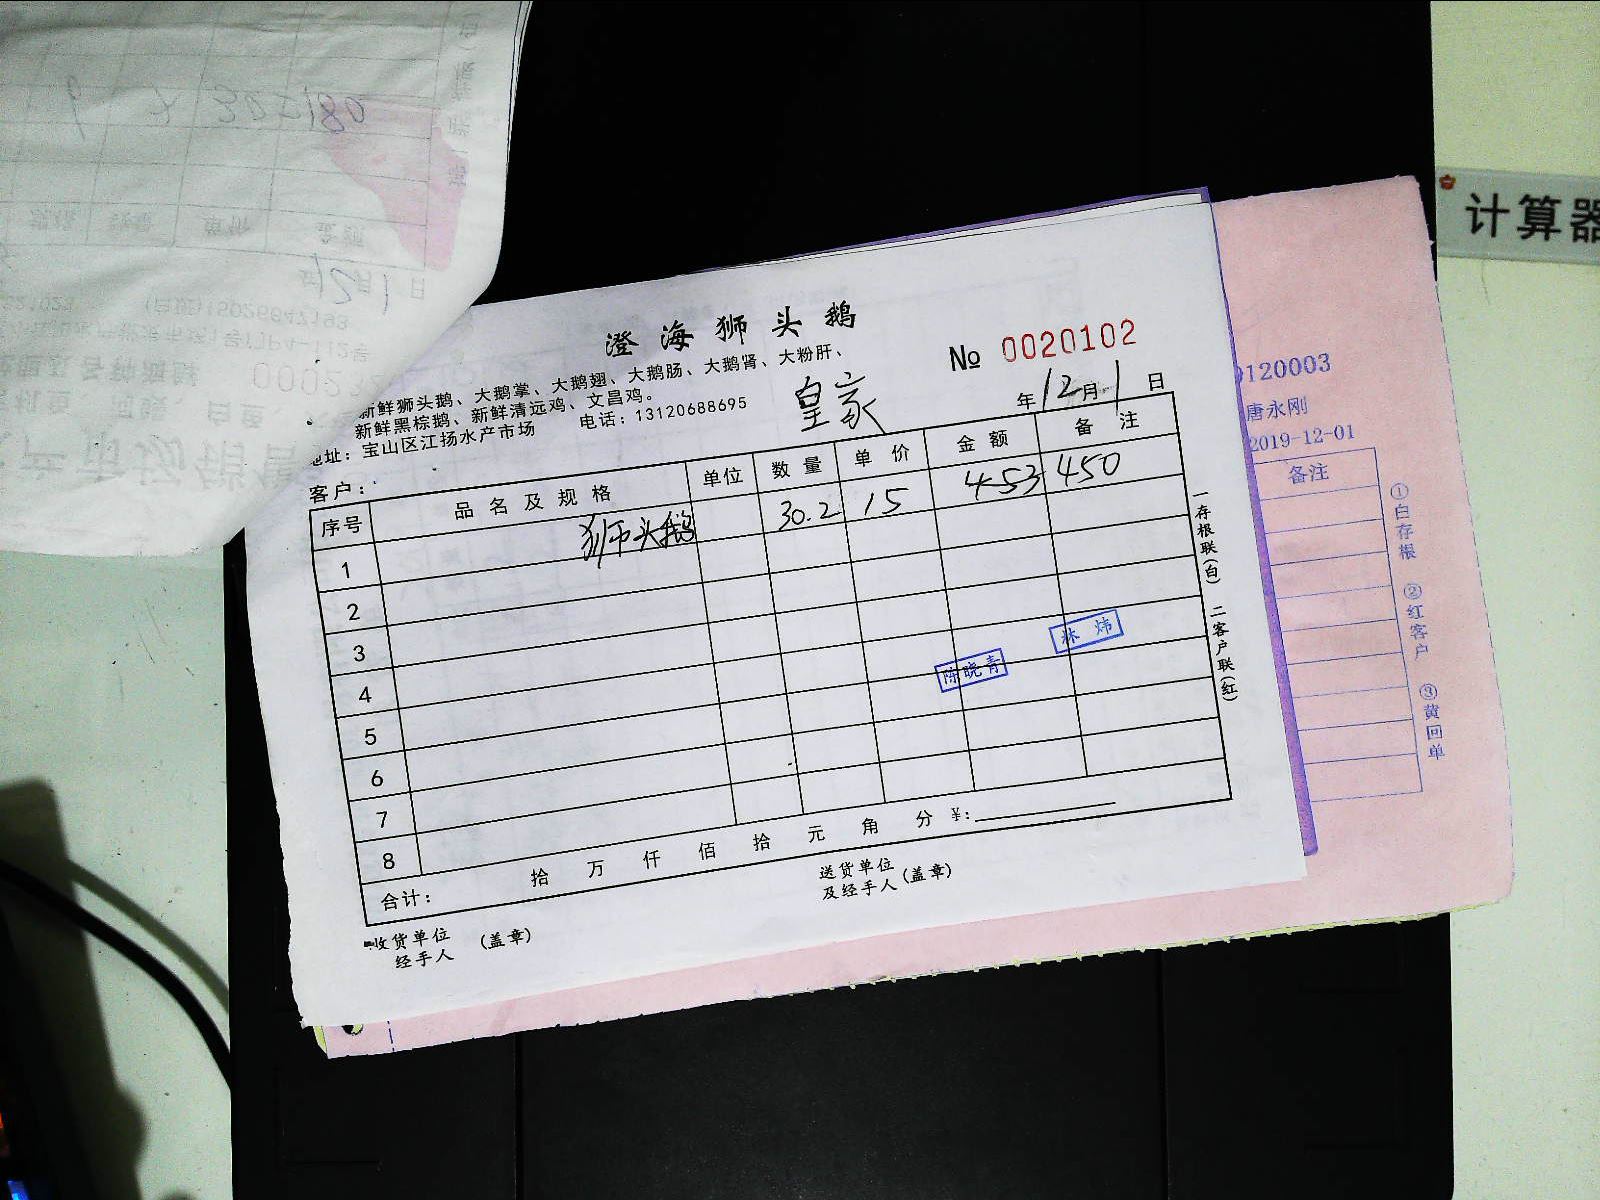 计算器
澄海狮头鹅
№ 0020102
新鲜狮头鹅、大鹅掌、大鹅翅、大鹅肠、大鹅肾、大粉肝、
新鲜黑棕鹅、新鲜清远鸡、文昌鸡。
地址：宝山区江扬水产市场 电话：13120688695
皇家
年12月1日
客户：
序号 品名及规格 单位 数量 单价 金额 备注
1 狮头鹅 30.2 15 453 450
2
3
4
5
6
7
8
林炜
陈晓青
合计： 拾 万 仟 佰 拾 元 角 分 ¥:
收货单位
经手人 (盖章)
送货单位
及经手人(盖章)
一存根联(白) 二客户联(红)
0120003
唐永刚
2019-12-01
备注
①白存根 ②红客户 ③黄回单